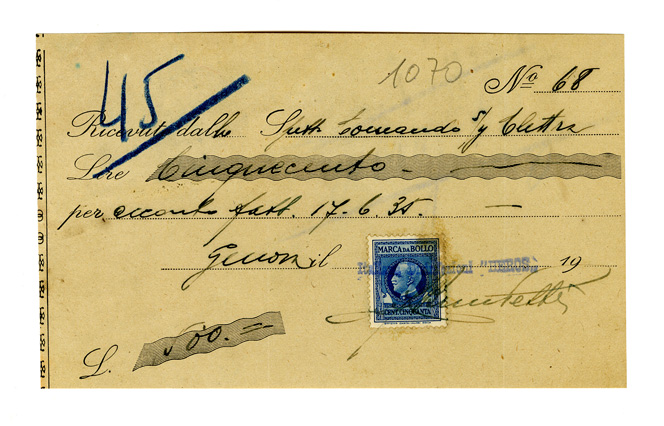 45
1070.
No 68
Ricevuto dalla Spett. Comando s/y Elettra
Lire Cinquecento
per acconto fatt. 17.6.35.
Genova il 19
MARCA DA BOLLO
CENT. CINQUANTA
L. 500.=